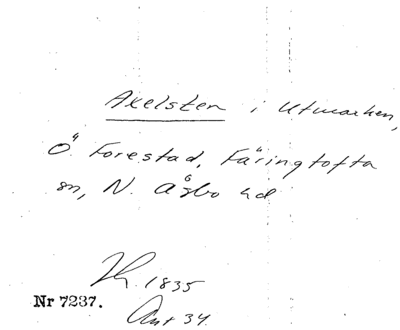 Axelsten i Utmarken,
Ö. Forestad, Färingtofta
sn, N. Åsbo hd
Th. 1835
Nr 7237.
Ant 34.